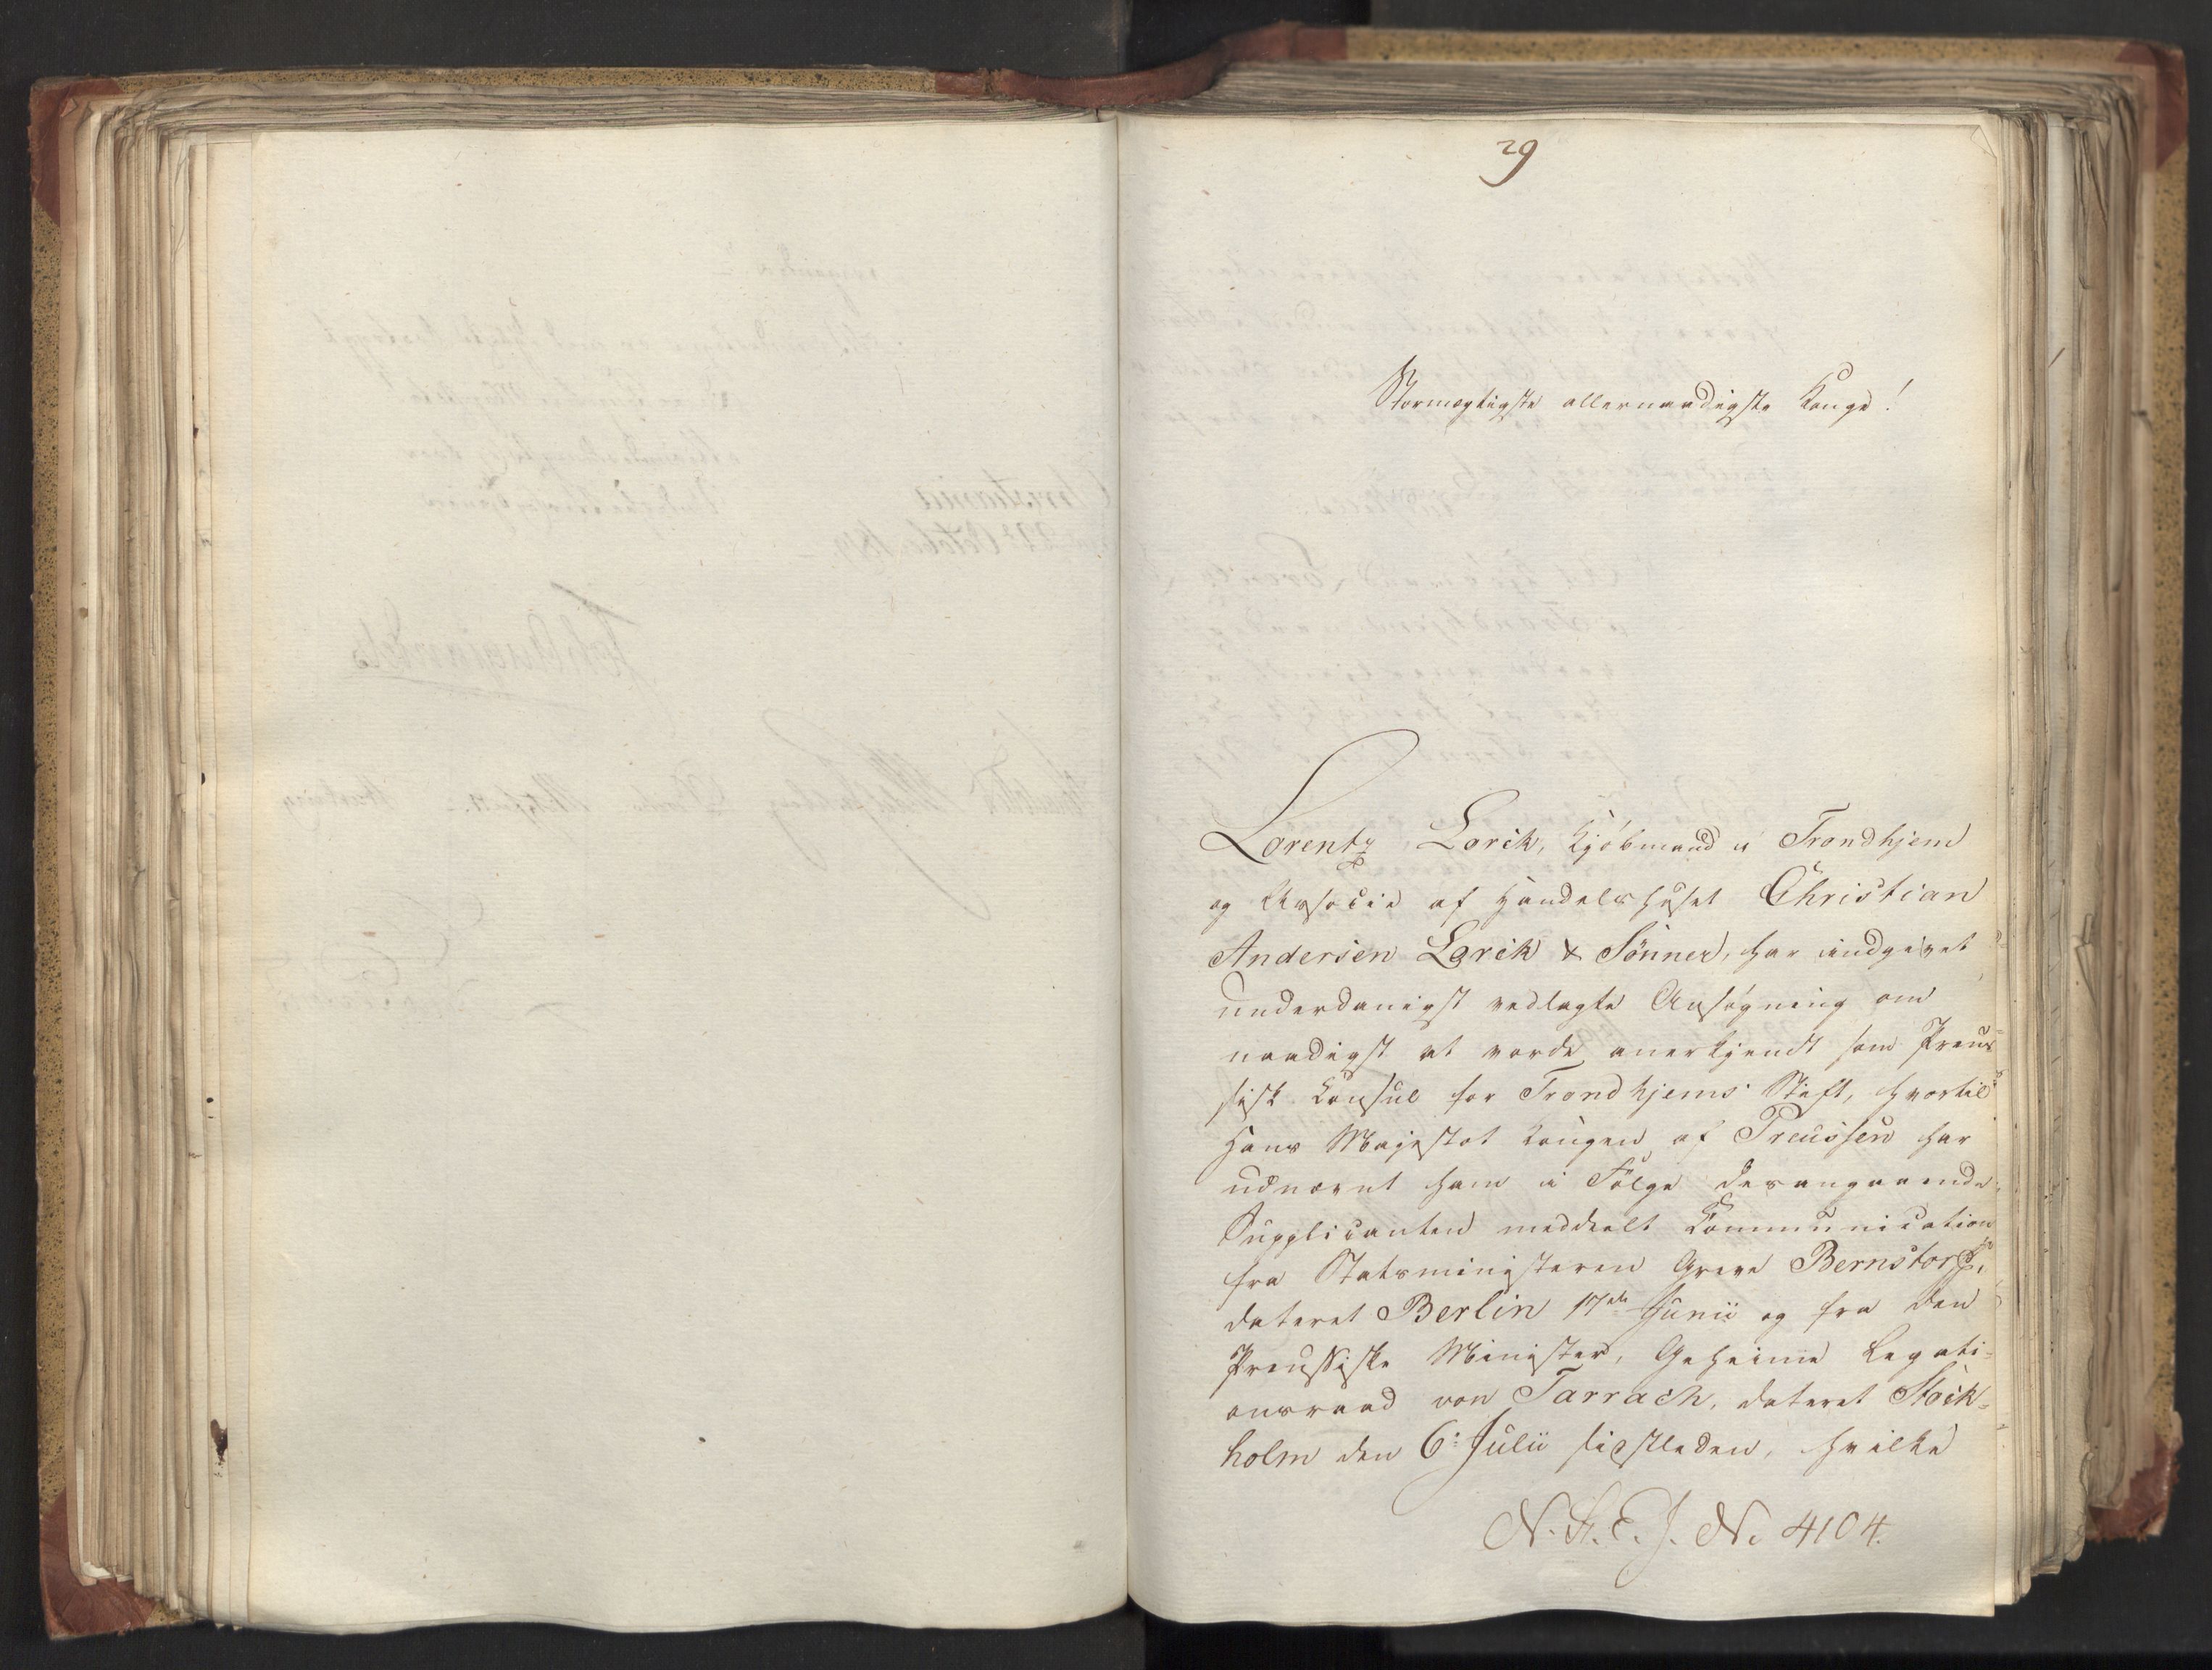 29
Stormægtigste allernaadigste Konge!
Lorentz Lorck, Kjøbmand i Trondhjem
og Associe af Handelshuset Christian
Andersen Lorck & Sönner, har indgivet
underdanigst vedlagte Ansøgning om
naadigst at vorde anerkjendt som Preus-
sisk Consul for Trondhjems Stift, hvortil
Hans Majestæt Kongen af Preussen har
udnævnt ham i Følge desangaaende
Supplicanten meddeelt Communication
fra Statsministeren Greve Bernstorff,
dateret Berlin 17de Junii og fra den
Preussiske Minister, Geheime Legati-
onsraad von Tarrach, dateret Stock-
holm den 6: Julii sidstleden, hvilke
N. St. E. J. No 4104.